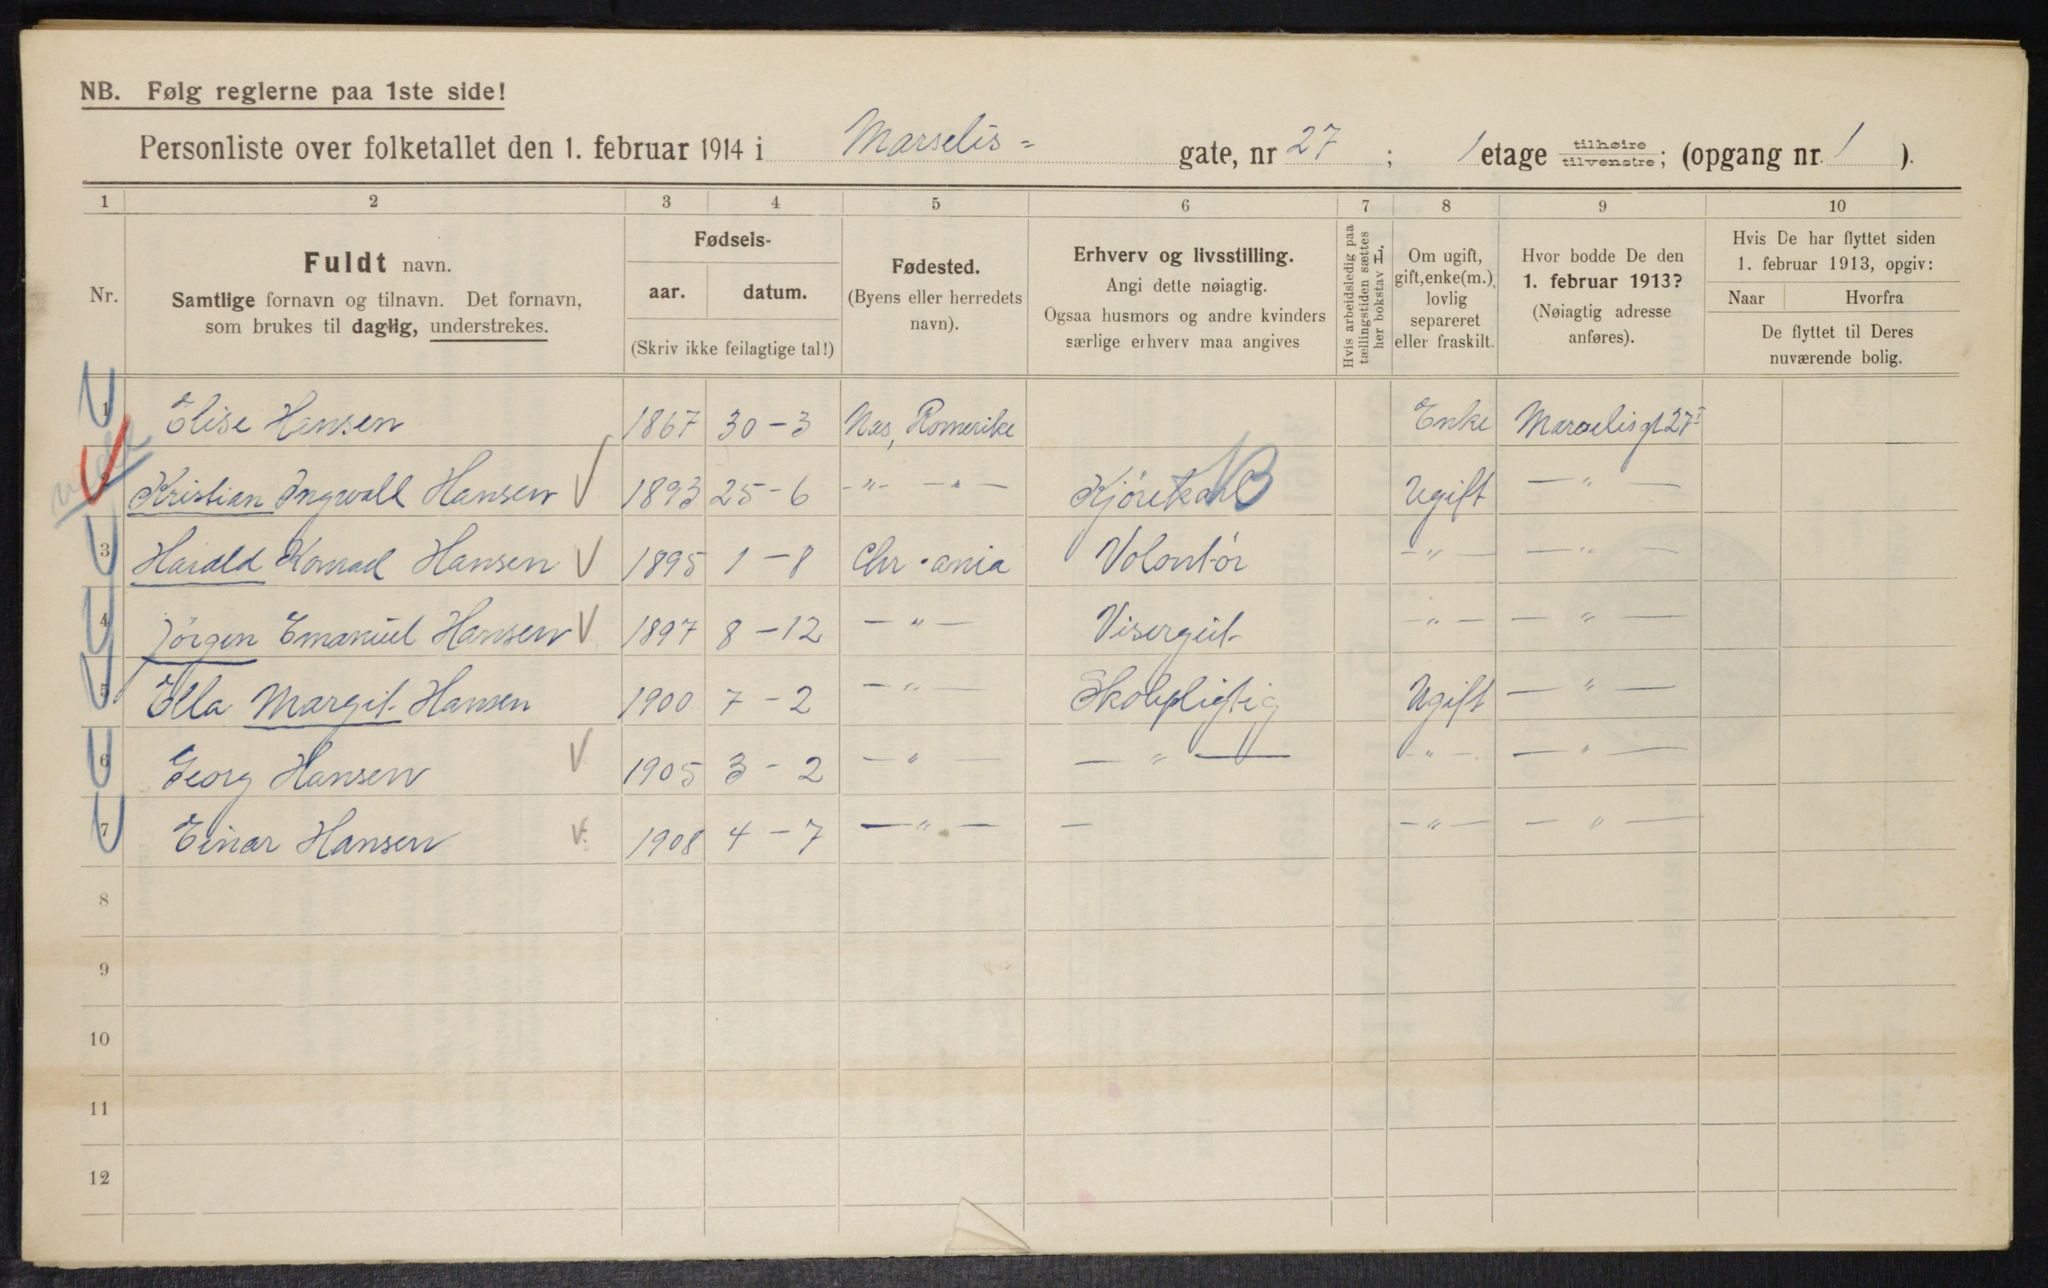 NB. Følg reglerne paa 1ste side!
Personliste over folketallet den 1. februar 1914 i Marselis- gate, nr 27 ; 1 etage tilhøire tilvenstre; (opgang nr. 1 ).
1 2 3 4 5 6 7 8 9 10
Nr.
Fuldt navn.
Samtlige fornavn og tilnavn. Det fornavn,
som brukes til daglig, understrekes.
Fødsels-
aar. datum.
(Skriv ikke feilagtige tal!)
Fødested.
(Byens eller herredets
navn).
Erhverv og livsstilling.
Angi dette nøiagtig.
Ogsaa husmors og andre kvinders
særlige erhverv maa angives
Hvis arbeidsledig paa
tællingstiden sættes
her bokstav L.
Om ugift,
gift, enke(m.),
lovlig
separeret
eller fraskilt.
Hvor bodde De den
1. februar 1913?
(Nøiagtig adresse
anføres).
Hvis De har flyttet siden
1. februar 1913, opgiv:
Naar Hvorfra
De flyttet til Deres
nuværende bolig.
1 Elise Hansen 1867 30-3 Næs, Romerike Enke Marselisgt 27 I
2 Kristian Ingvald Hansen V 1893 25-6 -"- -"- Kjørekarl Ugift -"-
3 Harald Konrad Hansen V 1895 1-8 Chr.ania Volontør -"- -"-
4 Jörgen Emanuel Hansen V 1897 8-12 -"- Visergut -"- -"-
5 Ella Margit Hansen 1900 7-2 -"- Skolepligtig Ugift -"-
6 Georg Hansen V 1905 3-2 -"- -"- -"- -"-
7 Einar Hansen V 1908 4-7 -"- - -"- -"-
8
9
10
11
12